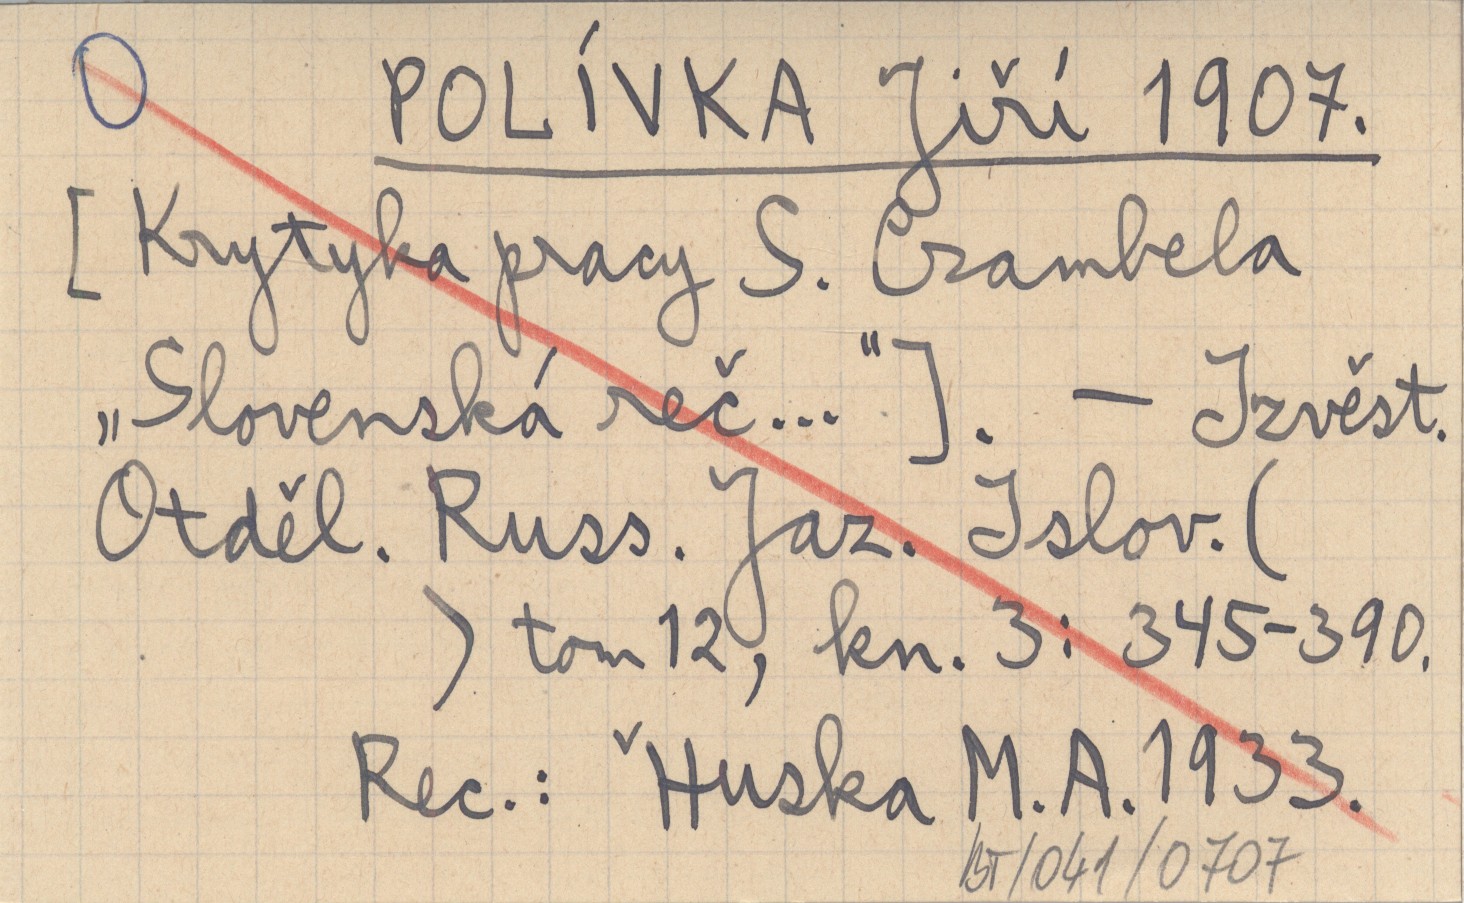 POLÍVKA Jiří 1907.
[Krytyka pracy S. Czambela
„Slovenská reč..."]. — Izvěst.
Otděl. Russ. Jaz. I slov. (
) tom 12, kn. 3: 345-390.
Rec.: ˇHuska M.A. 1933.
BT/041/0707